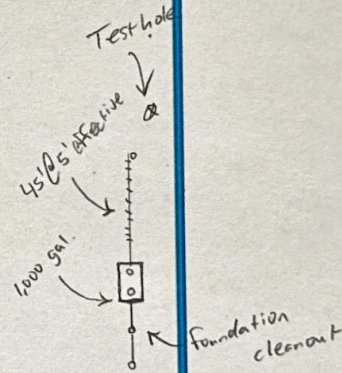 Testhole
45'@5' effective
1,000 gal.
foundation
cleanout